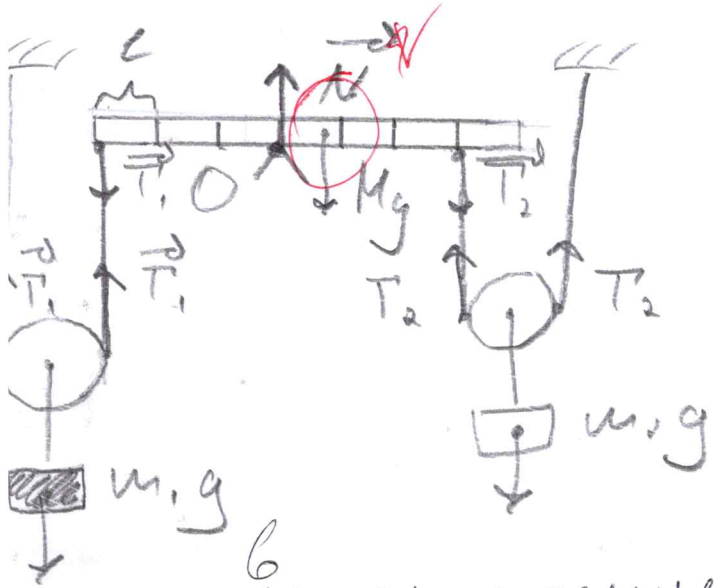 l
N
T₁ O Mg T₂
T₁ T₁ T₂ T₂
m₁g
m₁g
б